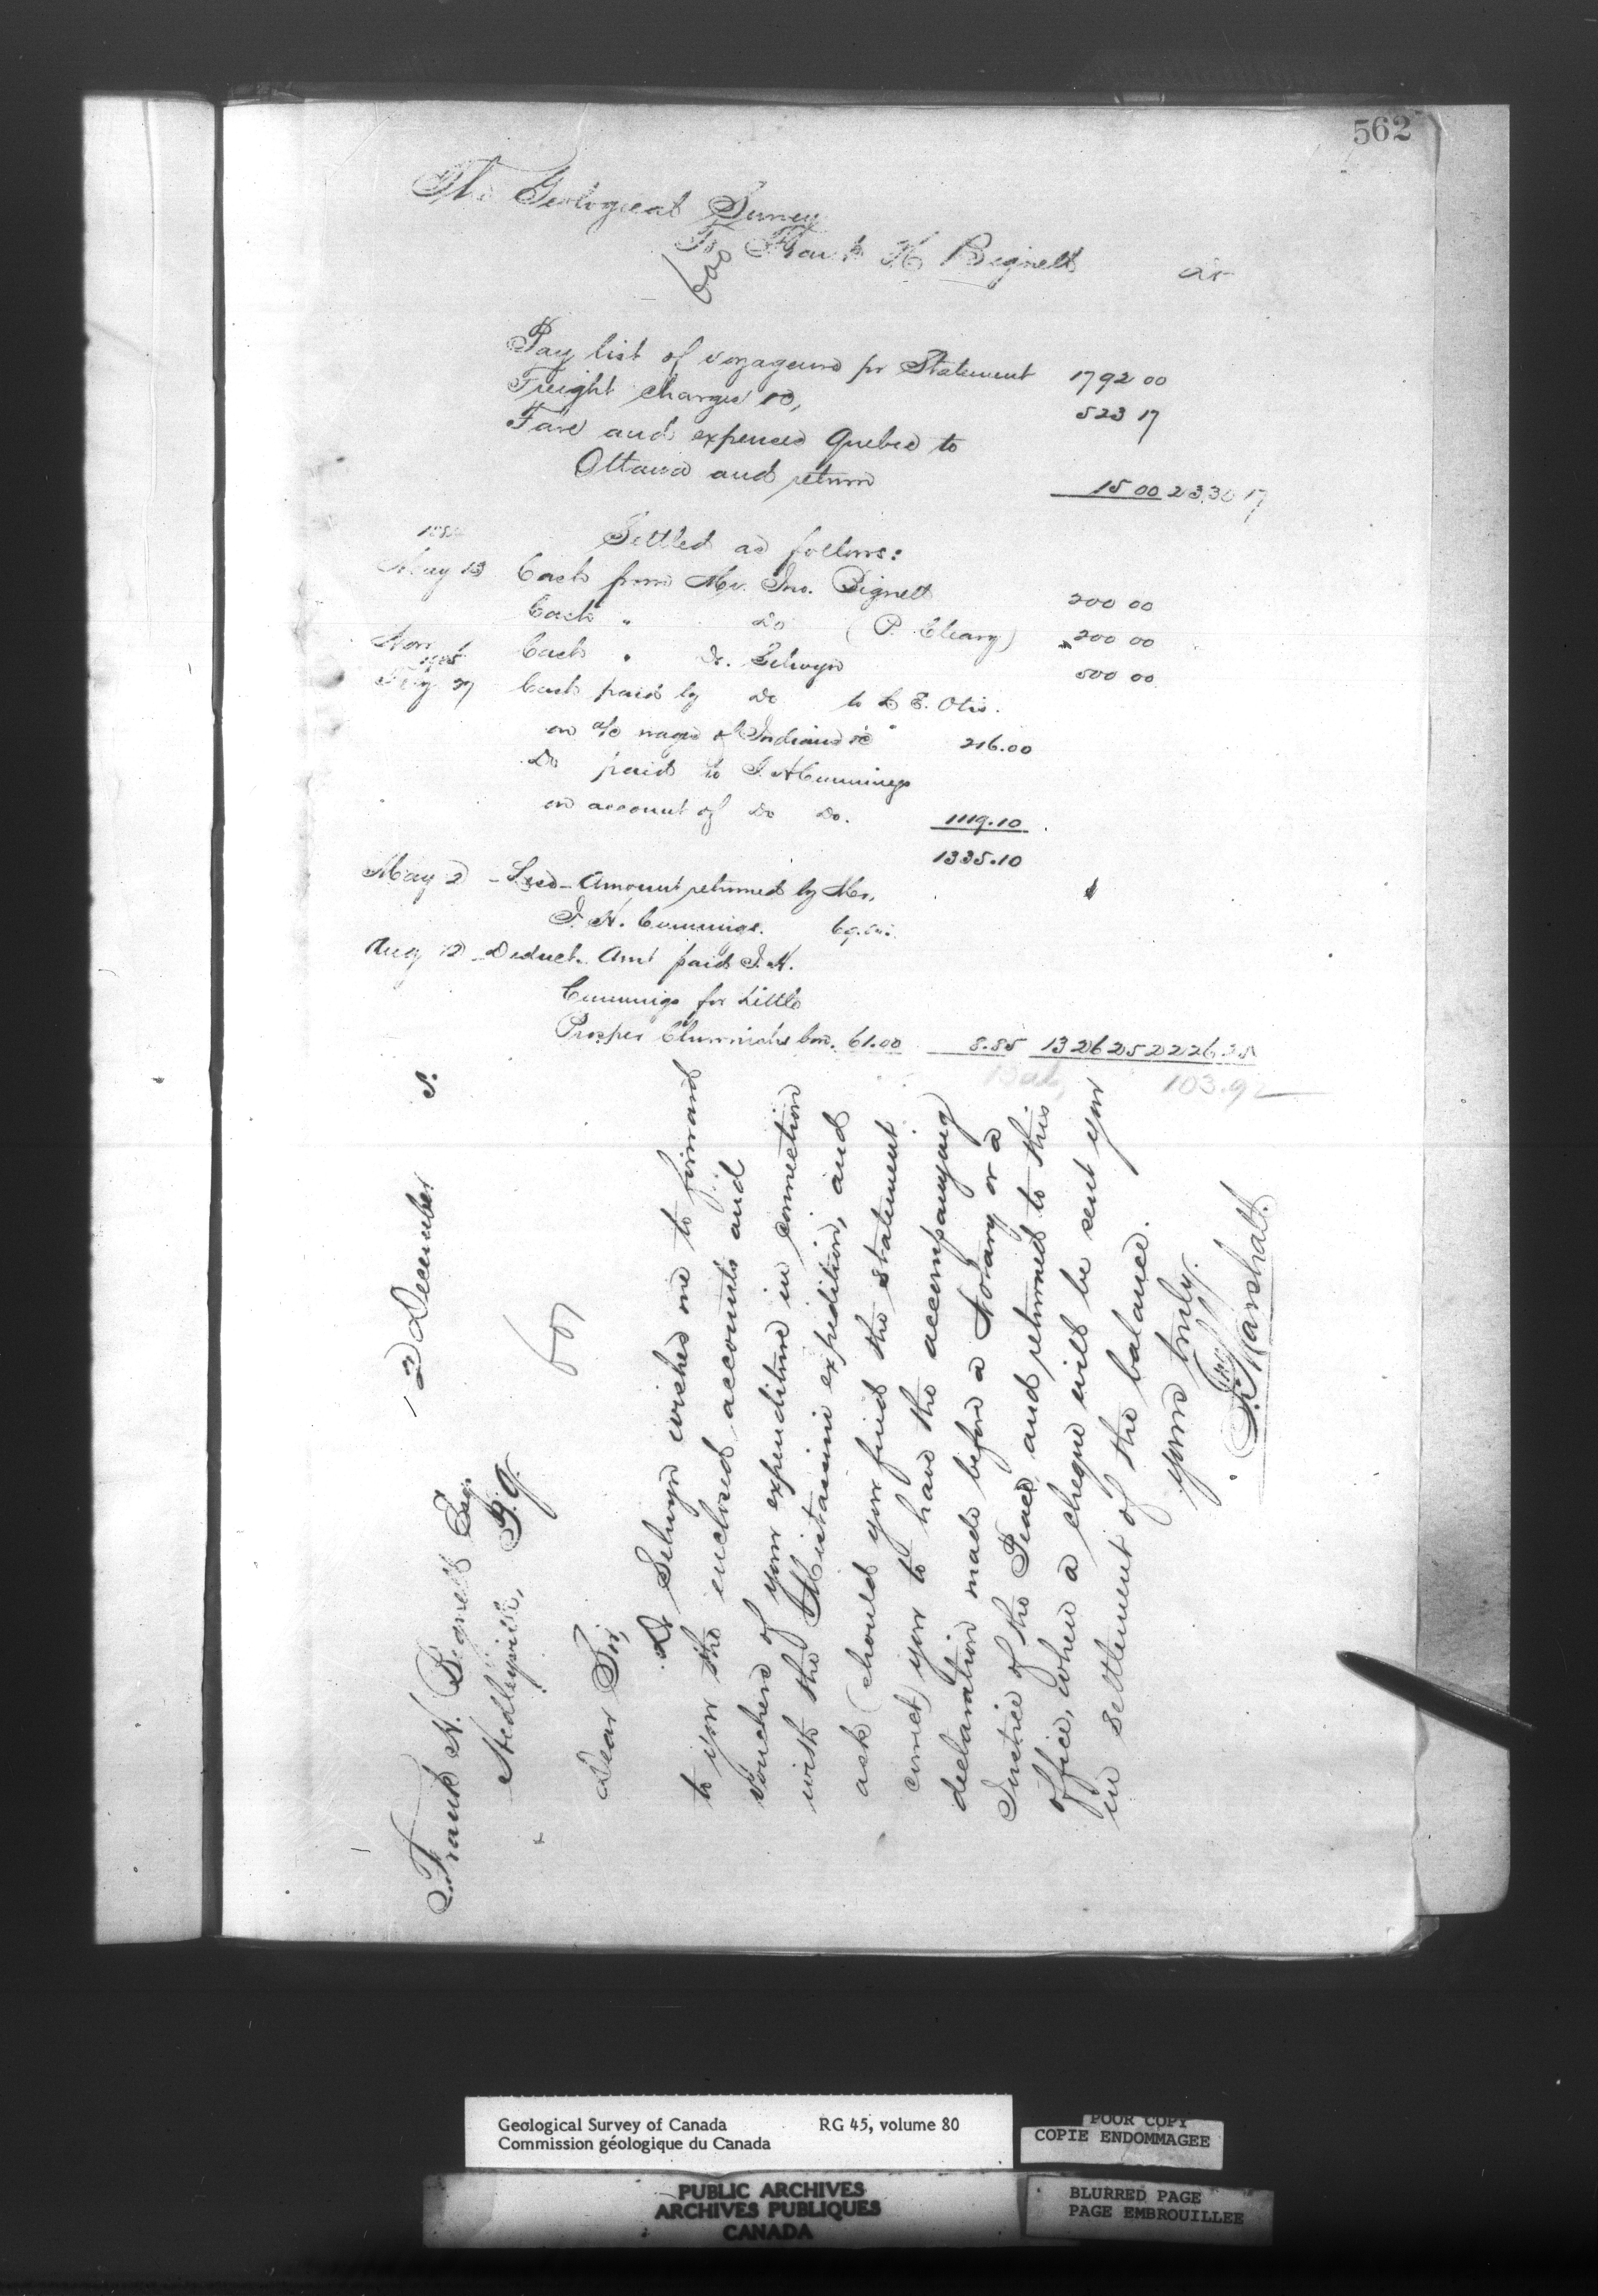 562
The Geological Survey
To Frank H Bignell Dr
600
Pay list of voyageurs pr Statement 1792 00
Freight charges Do, 523 17
Fare and expenses Quebec to
Ottawa and return 15 00 2330 17
Settled as follows:
May 13 Cash from Mr. Jno. Bignell 200 00
Cash " Do (P. Cleary) 200 00
Nov Cash " Dr. Selwyn 500 00
1885
Feby 27 Cash paid by Do to L E. Otis.
on a/c wages of Indians &c 216.00
Do paid to J. H Cummings
on account of Do Do. 1119.10
1335.10
May 2 - Less - Amount returned by Mr.
J. H. Cummings.
Aug 12 Deduct. Amt paid J. H.
Cummings for Little
Prosper 61.00 8.85 1326 25 2226 25
Bal, 103.92
12 December 5.
Frank H. Bignell Esq.
Hedleyville, P.Q.
601
Dear Sir,
Dr Selwyn wishes me to forward
to you the enclosed accounts and
vouchers of your expenditure in connection
with the Mistassini expedition, and
ask (should you find the statement
correct) you to have the accompanying
declaration made before a Notary or a
Justice of the Peace and returned to this
office, when a cheque will be sent you
in settlement of the balance.
yours truly.
J. Marshall
Geological Survey of Canada RG 45, volume 80
Commission géologique du Canada
POOR COPY
COPIE ENDOMMAGEE
PUBLIC ARCHIVES
ARCHIVES PUBLIQUES
CANADA
BLURRED PAGE
PAGE EMBROUILLEE